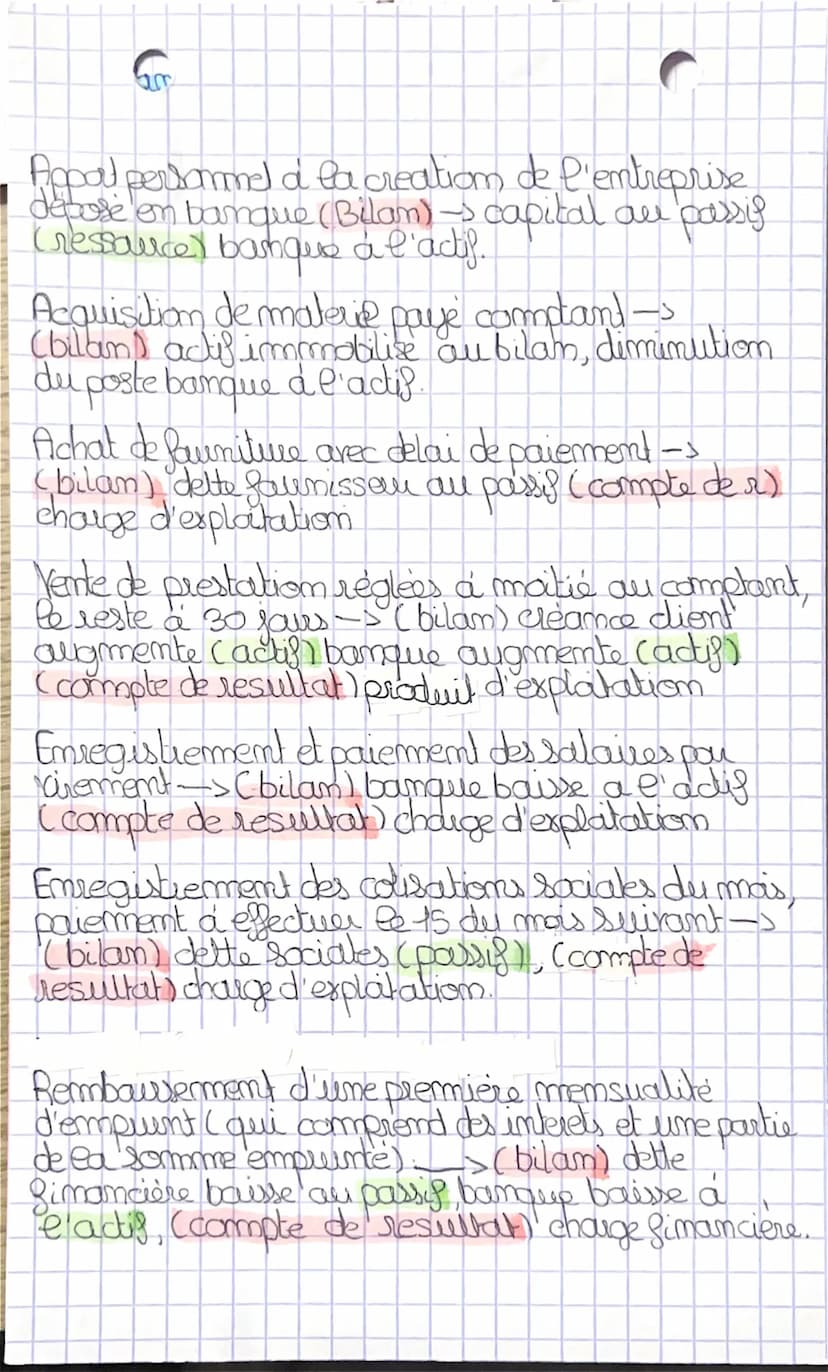 Apport personnel à la creation de l'entreprise
déposé en banque (Bilan) -> capital au passif
(ressource) banque à l'actif.
Acquisition de materiel payé comptant ->
(bilan) actif immobilisé au bilan, diminution
du poste banque à l'actif.
Achat de fourniture avec delai de paiement ->
(bilan) dette fournisseur au passif (compte de r)
charge d'exploitation
Vente de prestation réglées à moitié au comptant,
le reste à 30 jours -> (bilan) créance client
augmente (actif) banque augmente (actif)
(compte de resultat) produit d'exploitation
Enregistrement et paiement des salaires par
virement -> (bilan) banque baisse a l'actif
(compte de resultat) charge d'exploitation
Enregistrement des cotisations sociales du mois,
paiement à effectuer le 15 du mois suivant ->
(bilan) dette sociales (passif), (compte de
resultat) charge d'exploitation.
Remboursement d'une première mensualité
d'emprunt (qui comprend des interets et une partie
de la somme emprunté) -> (bilan) dette
financière baisse au passif, banque baisse à
l'actif, (compte de resultat) charge financière.